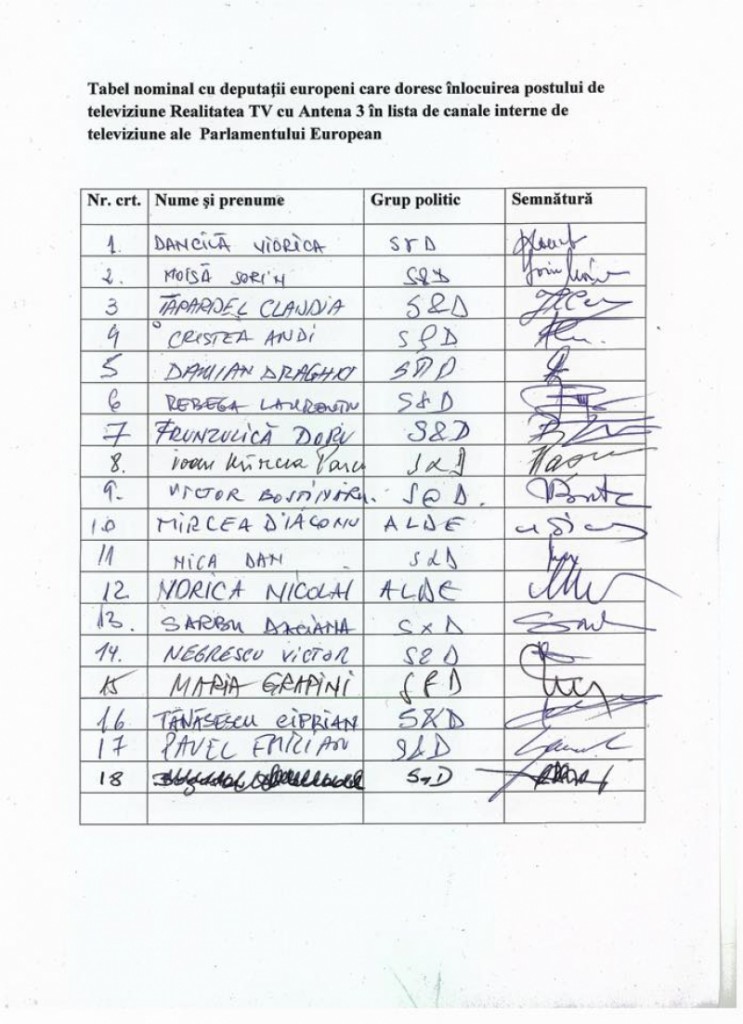 Tabel nominal cu deputaţii europeni care doresc înlocuirea postului de
televiziune Realitatea TV cu Antena 3 în lista de canale interne de
televiziune ale Parlamentului European
Nr. crt. Nume şi prenume Grup politic Semnătură
1. DANCILĂ VIORICA S&D
2. MOISĂ SORIN S&D
3 TAPARDEL CLAUDIA S&D
4 CRISTEA ANDI S&D
5 DAMIAN DRAGHICI S&D
6 REBEGA LAURENTIU S&D
7 FRUNZULICĂ DORU S&D
8. Ioan Mircea Pascu S&D
9. VICTOR BOSTINARU. S&D.
10 MIRCEA DIACONU ALDE
11 NICA DAN S&D
12 NORICA NICOLAI ALDE
13. SARBU DACIANA S&D
14. NEGRESCU VICTOR S&D
15 MARIA GRAPINI S&D
16 TĂNĂSESCU CIPRIAN S&D
17 PAVEL EMILIAN S&D
18 S&D